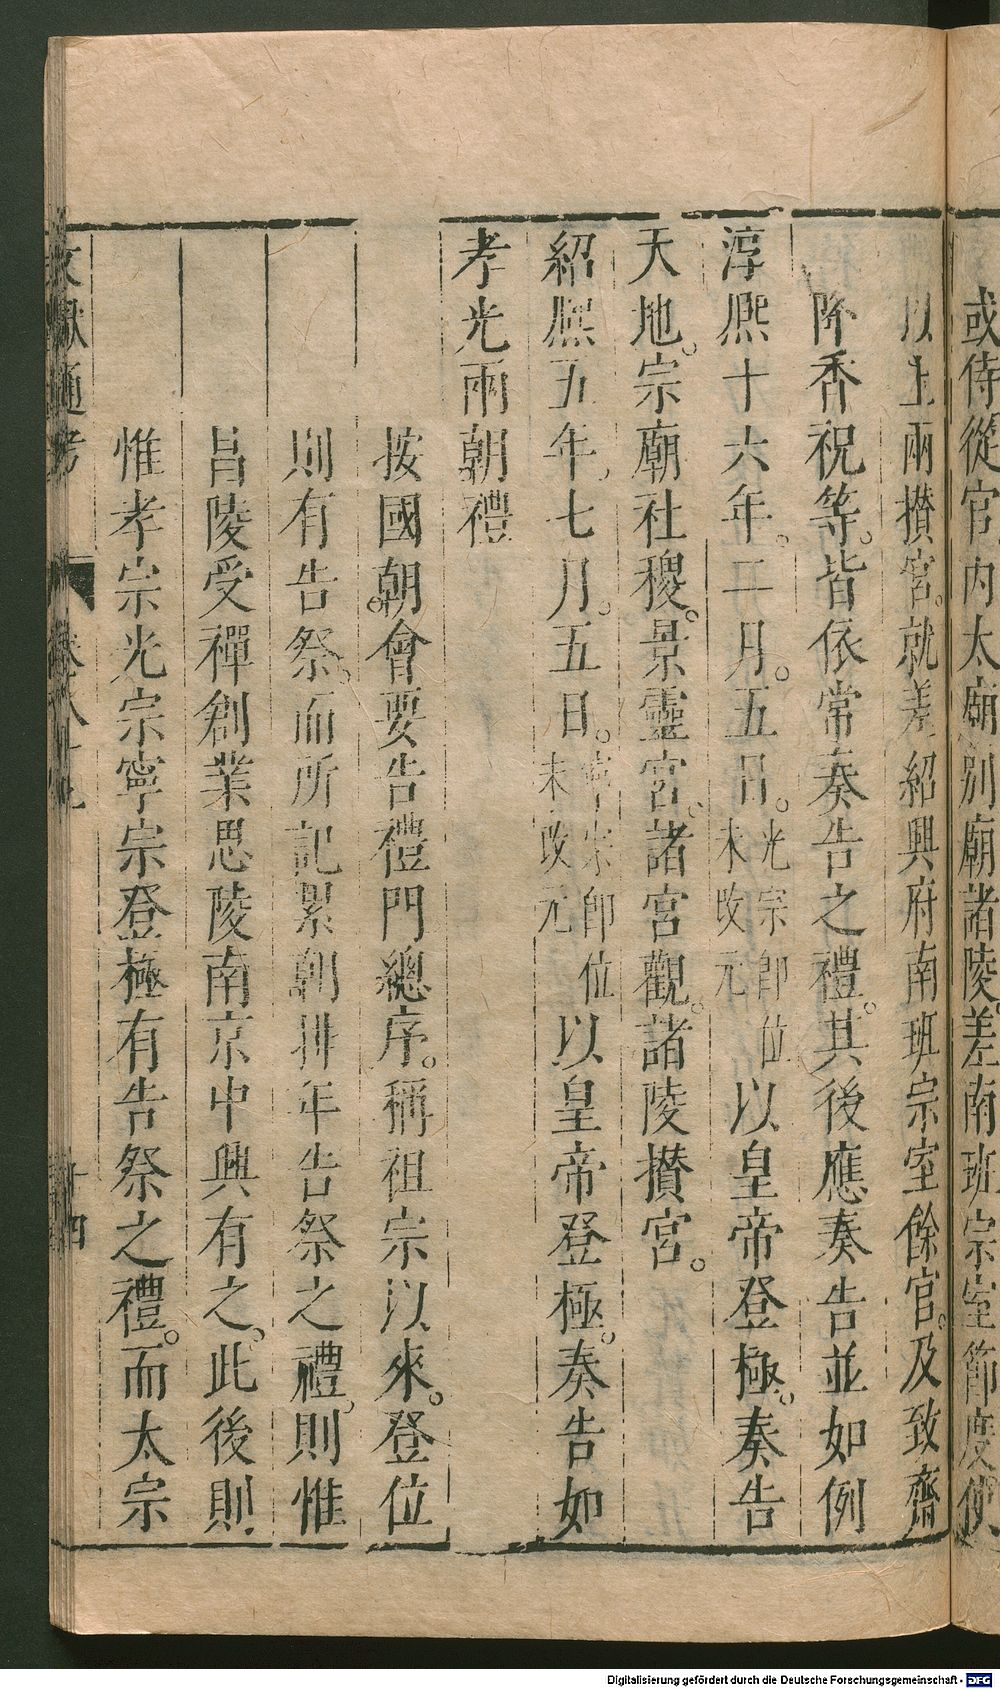 或侍從官内太廟别廟諸陵差南班宗室節度使
以上兩攅宫。就差紹興府南班宗室餘官。及致齋
陞香祝等。皆依常奏告之禮。其後應奏告並如例
淳熈十六年。二月。五日。光宗即位未改元以皇帝登極。奏告
天地。宗廟社稷。景靈宫。諸宫觀。諸陵攅宫。
紹熈五年。七月。五日。寧宗即位未改元以皇帝登極。奏告如
孝光兩朝禮
按國朝。會要告禮門總序。稱祖宗以來。登位
則有告祭。而所記累朝排年告祭之禮。則惟
昌陵受禪創業思陵南京中興有之。此後則
惟孝宗光宗寧宗登極有告祭之禮。而太宗
文獻通考
卷八十九
十四
Digitalisierung gefördert durch die Deutsche Forschungsgemeinschaft - DFG